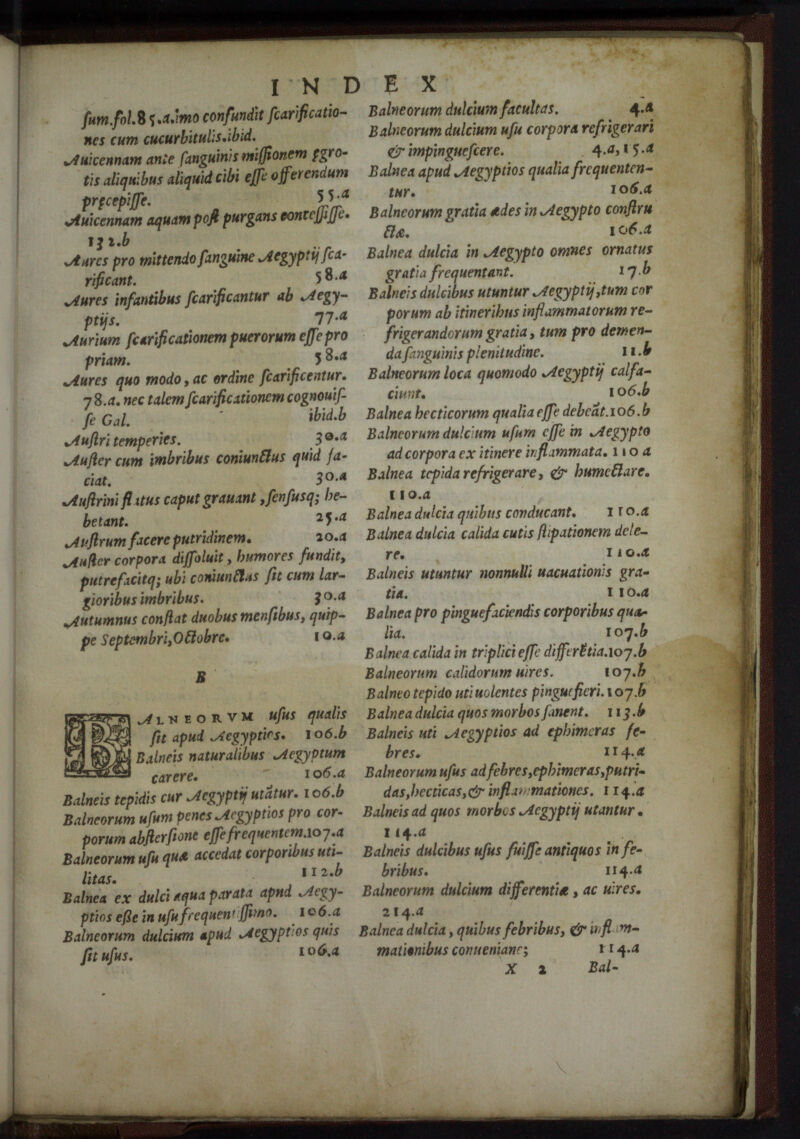 INDEX
sum.fol.85.a.imo confundit scarificatio-
nes cum cucurbitulis.ibid.
Auicennam ante sanguinis missionem ęgro-
tis aliquibus aliquid cibi esse offerendum
pręcepisse. 55.a
Auicennam aquam post purgans concessisse.
132.b
Aures pro mittendo sanguine Aegyptij sca-
rificant. 58.a
Aures infantibus scarificantur ab Aegy-
ptijs. 77.a
Aurium scarificationem puerorum esse pro
priam. 58.a
Aures quo modo, ac ordine scarificentur.
78.a. nec talem scarificationem cognouis-
se Gal. ibid.b
Austri temperies. 30.a
Auster cum imbribus coniunctus quid fa-
ciat. 30.a
Austrini flatus caput grauant, sensusq; he-
betant. 25.a
Austrum facere putridinem. 20.a
Auster corpora dissoluit, humores fundit,
putrefacitq; ubi coniunctas sit cum lar-
gioribus imbribus. 30.a
Autumnus constat duobus mensibus, quip-
pe Septembri, Octobre. 10.a
B
BALNEORVM usus qualis
sit apud Aegyptios. 106.b
Balneis naturalibus Aegyptum
carere. 106.a
Balneis tepidis cur Aegyptij utātur. 106.b
Balneorum usum penes Aegyptios pro cor-
porum abstersione esse frequentem.107.a
Balneorum usu quæ accedat corporibus uti-
litas. 112.b
Balnea ex dulci aqua parata apud Aegy-
ptios eße in usu frequentissimo. 106.a
Balneorum dulcium apud Aegyptios quis
sit usus. 106.a
Balneorum dulcium facultas. 4.a
Balneorum dulcium usu corpora refrigerari
& impinguescere. 4.a,15.a
Balnea apud Aegyptios qualia frequenten-
tur. 106.a
Balneorum gratia ædes in Aegypto constru
ctæ. 106.a
Balnea dulcia in Aegypto omnes ornatus
gratia frequentant. 17.b
Balneis dulcibus utuntur Aegyptij, tum cor
porum ab itineribus inflammatorum re-
frigerandorum gratia, tum pro demen-
da sanguinis plenitudine. 11.b
Balneorum loca quomodo Aegyptij calfa-
ciunt. 106.b
Balnea hecticorum qualia esse debeāt.106.b
Balneorum dulcium usum esse in Aegypto
ad corpora ex itinere inflammata. 110 a
Balnea tepida refrigerare, & humectare.
110.a
Balnea dulcia quibus conducant. 110.a
Balnea dulcia calida cutis stipationem dele-
re. 110.a
Balneis utuntur nonnulli uacuationis gra-
tia. 110.a
Balnea pro pinguefaciendis corporibus qua-
lia. 107.b
Balnea calida in triplici esse differētia.107.b
Balneorum calidorum uires. 107.b
Balneo tepido uti uolentes pinguefieri.107.b
Balnea dulcia quos morbos sanent. 113.b
Balneis uti Aegyptios ad ephimeras fe-
bres. 114.a
Balneorum usus ad febres, ephimeras, putri-
das, hecticas, & inflammationes. 114.a
Balneis ad quos morbos Aegyptij utantur.
114.a
Balneis dulcibus usus fuisse antiquos in fe-
bribus. 114.a
Balneorum dulcium differentiæ, ac uires.
214.a
Balnea dulcia, quibus febribus, & inflam-
mationibus conueniant; 114.a
X 2 Bal-